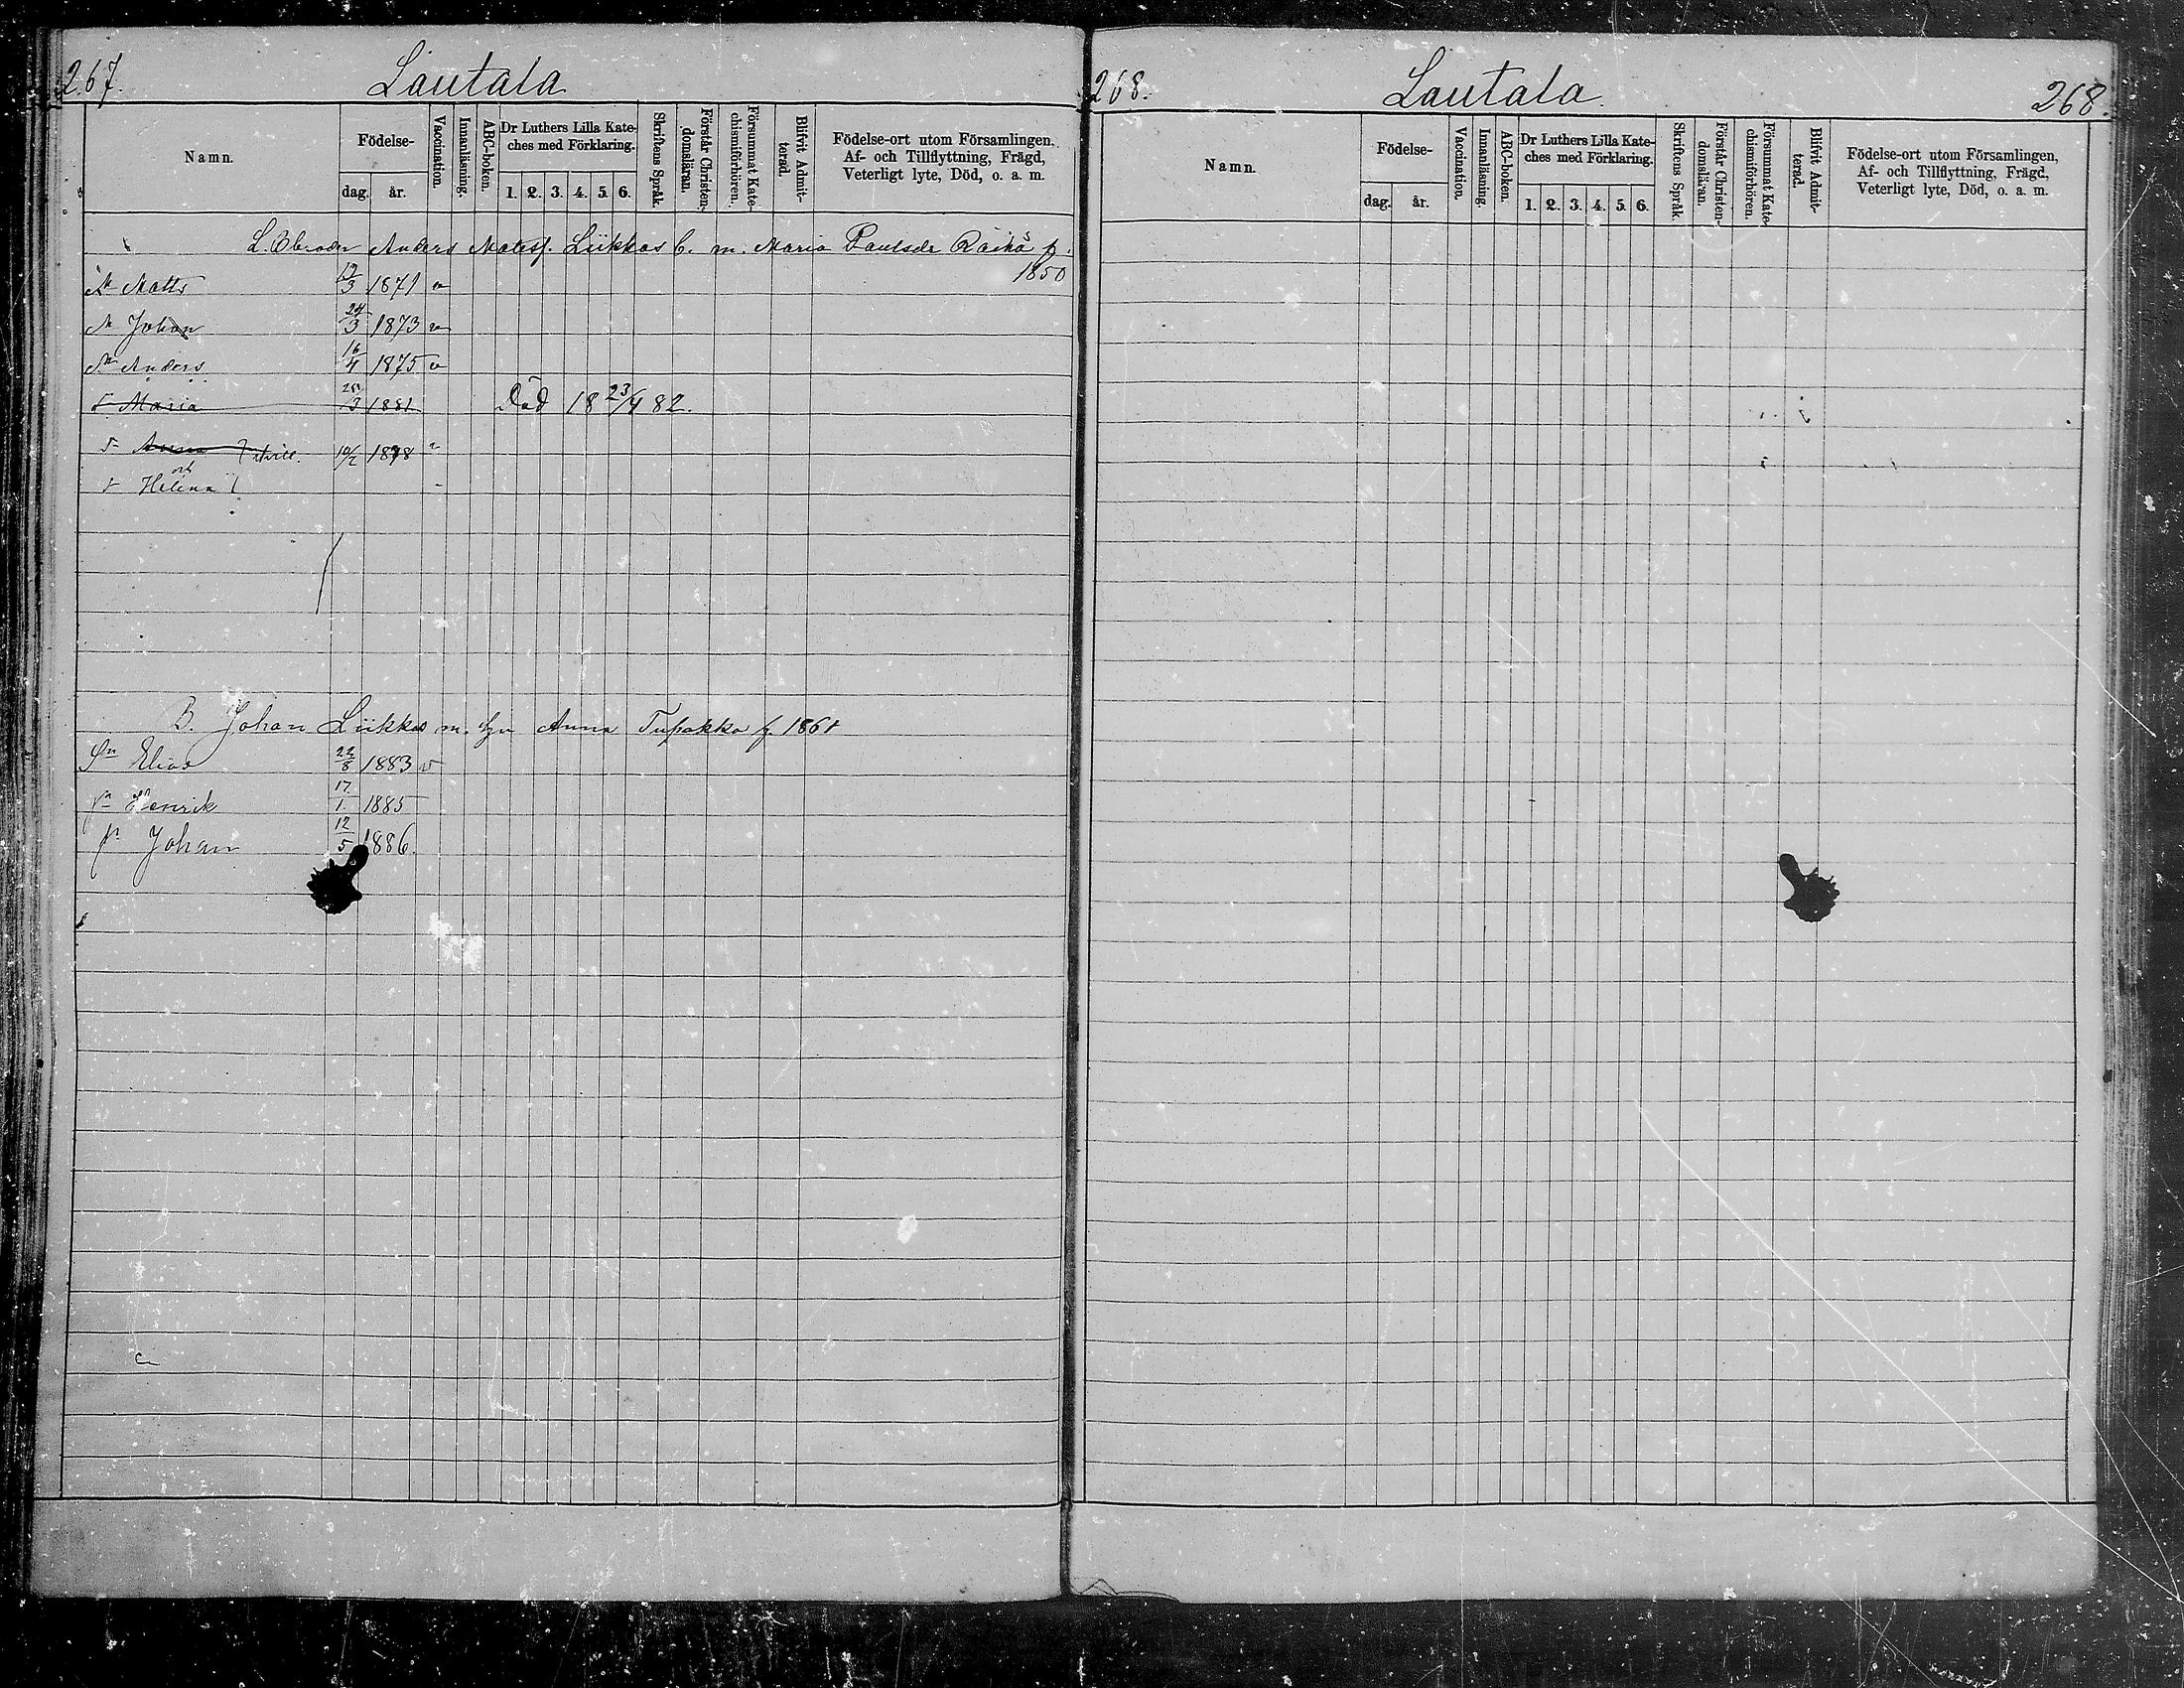 267. Lautala
Namn. Födelse- dag. år. Vaccination. Innanläsning. ABC-boken. Dr Luthers Lilla Kateches med Förklaring. 1. 2. 3. 4. 5. 6. Skriftens Språk. Förstår Christendomsläran. Försummat Katechismiförhören. Blifvit Admitterad. Födelse-ort utom Församlingen. Af- och Tillflyttning, Frägd, Veterligt lyte, Död, o. a. m.
Anders Matss. Liikkas m. Maria Paulsdr Räihä f.
1850
Matts 3 1871 v
Johan 24/3 1873 v
Anders 16/4 1875 v
Maria 25/3 1881 Död 18 23/4 82.
Anna 10/2 1878
och
Helena
B. Johan Liikkas m. Anna f. 1861
Sn Elias 22/8 1883 v
sn Henrik 17/1 1885
sn Johan 12/5 1886.
268. Lautala. 268.
Namn. Födelse- dag. år. Vaccination. Innanläsning. ABC-boken. Dr Luthers Lilla Kateches med Förklaring. 1. 2. 3. 4. 5. 6. Skriftens Språk. Förstår Christendomsläran. Försummat Katechismiförhören. Blifvit Admitterad. Födelse-ort utom Församlingen, Af- och Tillflyttning, Frägd, Veterligt lyte, Död, o. a. m.